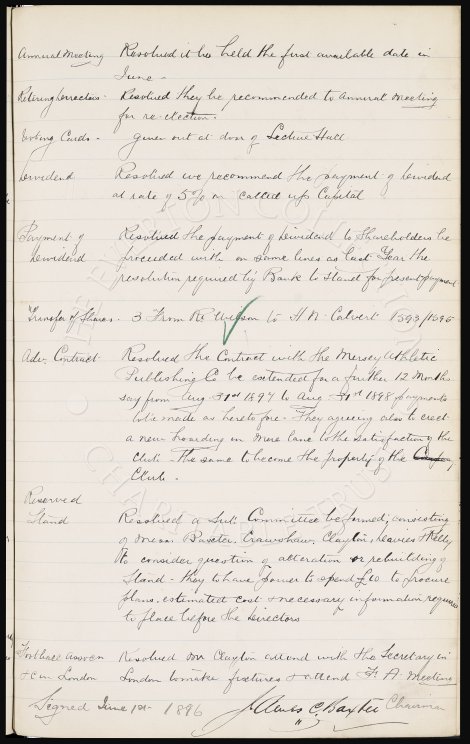 Annual Meeting Resolved it be held the first available date in
June -
Retiring Directors - Resolved they be recommended to Annual Meeting
for re-election.
Voting Cards - given out at door of Lecture Hall
Dividend Resolved we recommend the payment of Dividend
at rate of 5% on called up Capital
Payment of Resolved the payment of Dividend to Shareholders be
Dividend proceeded with on same lines as last Year the
resolution required by Bank to stand for present payment
Transfer of Shares - 3 From Wilson to H. W. Calvert 1593/1595
Adv. Contract Resolved the Contract with the Mersey Athletic
Publishing Co be extended for a further 12 Months
say from Aug 31st 1897 to Aug 31st 1898 payments
to be made as heretofore - They agreeing also to erect
a new hoarding in Mere lane to the satisfaction of the
Club - The same to become the property of the
Club.
Reserved
Stand Resolved a Sub. Committee be formed, consisting
of Messrs Baxter, Crawshaw, Clayton, Leavies & Kelly
to consider question of alteration or rebuilding of
Stand - they to have power to spend £10 to procure
plans, estimated cost & necessary information required
to place before the Directors
Football Assocn Resolved Mr Clayton attend with the Secretary in
London London to make fixtures & attend F. A. Meeting
Signed June 1st 1896 James C. Baxter Chairman
THE EVERTON COLLECTION
CHARITABLE TRUST